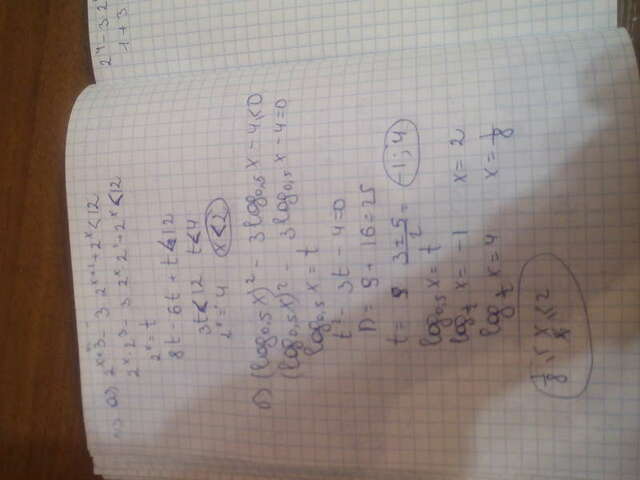 2⁴ - 3·2
-1 + 3
а) 2ˣ⁺³ - 3·2ˣ⁺¹ + 2ˣ < 12
2ˣ·2³ - 3·2ˣ·2 + 2ˣ < 12
2ˣ = t
8t - 6t + t < 12
3t < 12 t < 4
2ˣ = 4 x < 2
б) (log₀,₅x)² - 3log₀,₅x - 4 < 0
(log₀,₅x)² - 3log₀,₅x - 4 = 0
log₀,₅x = t
t² - 3t - 4 = 0
D = 9 + 16 = 25
t = (3 ± 5)/2 = -1; 4
log₀,₅x = t
x = -1 x = 2
x = 4 x = 1/8
1/8 x 2